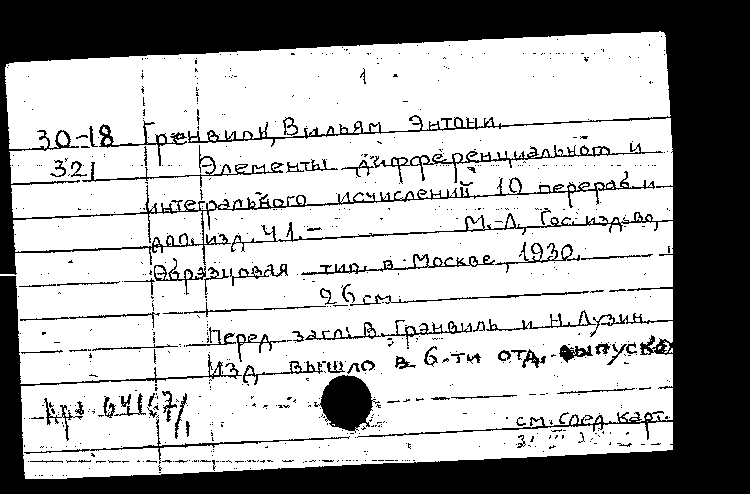 1
30-18 Гренвиль, Вильям Энтони.
321 Элементы дифференциальногo и
интегрального исчислений. 10 перераб. и
доп. изд. Ч.1.– М.-Л., Гос. изд-во,
Образцовая тип. в Москве, 1930.
26 см.
Перед загл: В. Грэнвиль и Н. Лузин.
Изд. вышло в 6-ти отд. выпусках
Арх 64167/1
см. след. карт.